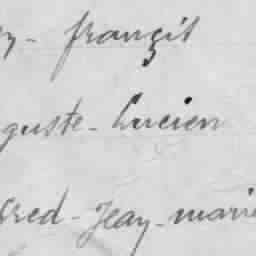 y- françis
guste- Lucien
fred- Jean- marie